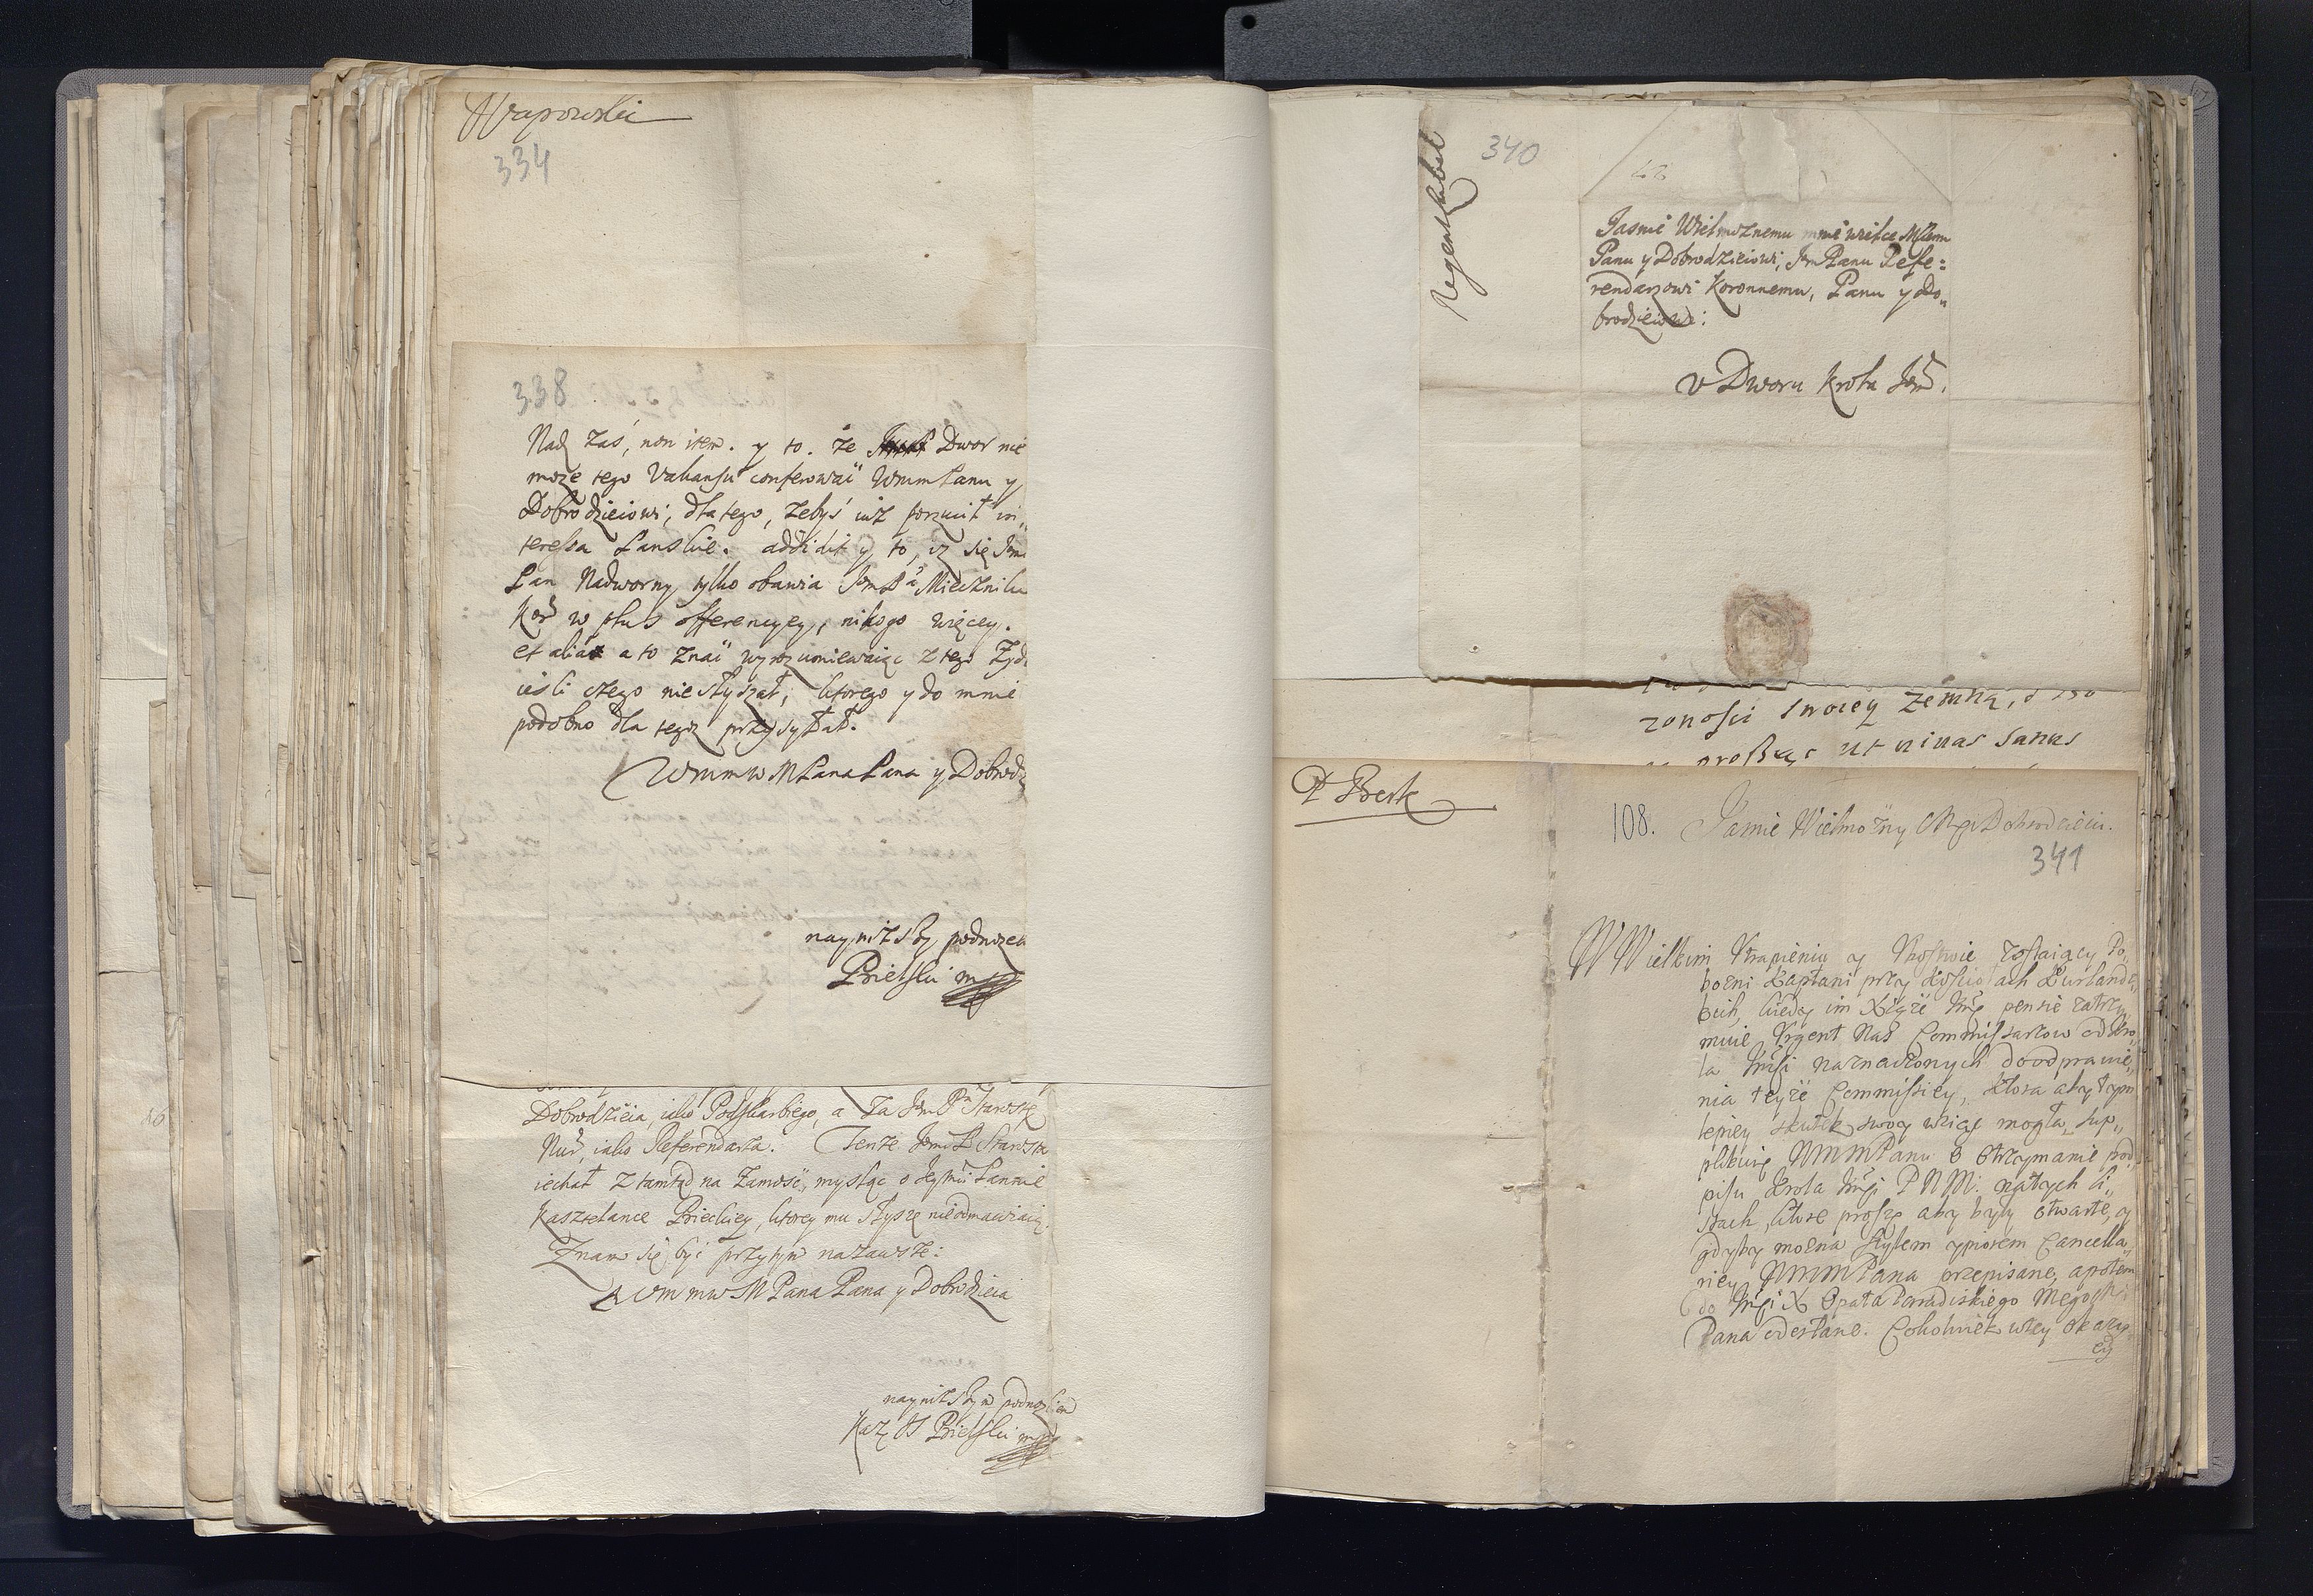 334
338
Nad zaś, non item. y to. że Dwor nie
może tego Vakansu conferować WmmPanu y
Dobrodzieiowi, dla tego, żebyś iuż porzucił in„
teressa Pańskie. addidit y to, iż się Jmć
Pan Nadworny tylko obawia JmPa Miecznika
Kor w plus offerencyey, nikogo więcey.
et alia a to znać wyrozumiewaiąc z tego Żyda
iesli czego nie słyszał, ktorego y do mnie
podobno dla tego przysyłał.
WmmwMPana Pana y Dobrodz
nayniższy podnożek
Bielski mp
Dobrodzieia, iako Podskarbiego, a za JmPa Starostę
Nur, iako Referendarza. Tenże Jmć P Starosta
iechał z tamtąd na Zamość, mysląc o Jeymci Pannie
Kasztelance Brieckiey, ktorey mu słyszę nie odmawiaią.
Znam się być przytym na zawsze:
WmmwMPana Pana y Dobrodzieia
nayniższym podnożkiem
Kaz Bielski mp
Regent
340
Jasnie Wielmożnemu mnie wielce Młemu
Panu y Dobrodzieiowi, JmPanu Refe=
rendarzowi Koronnemu, Panu y Do„
brodzieiowi:
v Dworu Krola Jmć.
zonosci swoiey
prosząc ut vivas sanus
108. Jasnie Wielmożny Mci Dobrodzieiu.
341
W Wielkim Vtrapieniu y Vbostwie zostaiący Po„
bożni Kapłani przy Kosciołach Kurlandz„
kich, kiedy im Xiążę Jmć pensie zatrzy„
muie Vrgent Nas Commissarzow od Kro„
la Jmsci naznaczonych do odprawie„
nia teyże Commissiey, ktora aby tym
lepiey skutek swoy wziąć mogła, sup„
plikuię WmmPanu o otrzymanie pod„
pisu Krola Jmsci P N M. na tych li„
stach, ktore proszę aby były otwarte, y
gdyby można stylem y piorem Cancella„
riey WmmPana przepisane, a potem
do Jmsci X Opata Paradiskiego Mego
Pana odesłane. Cokolwiek w tey okazy„
ey